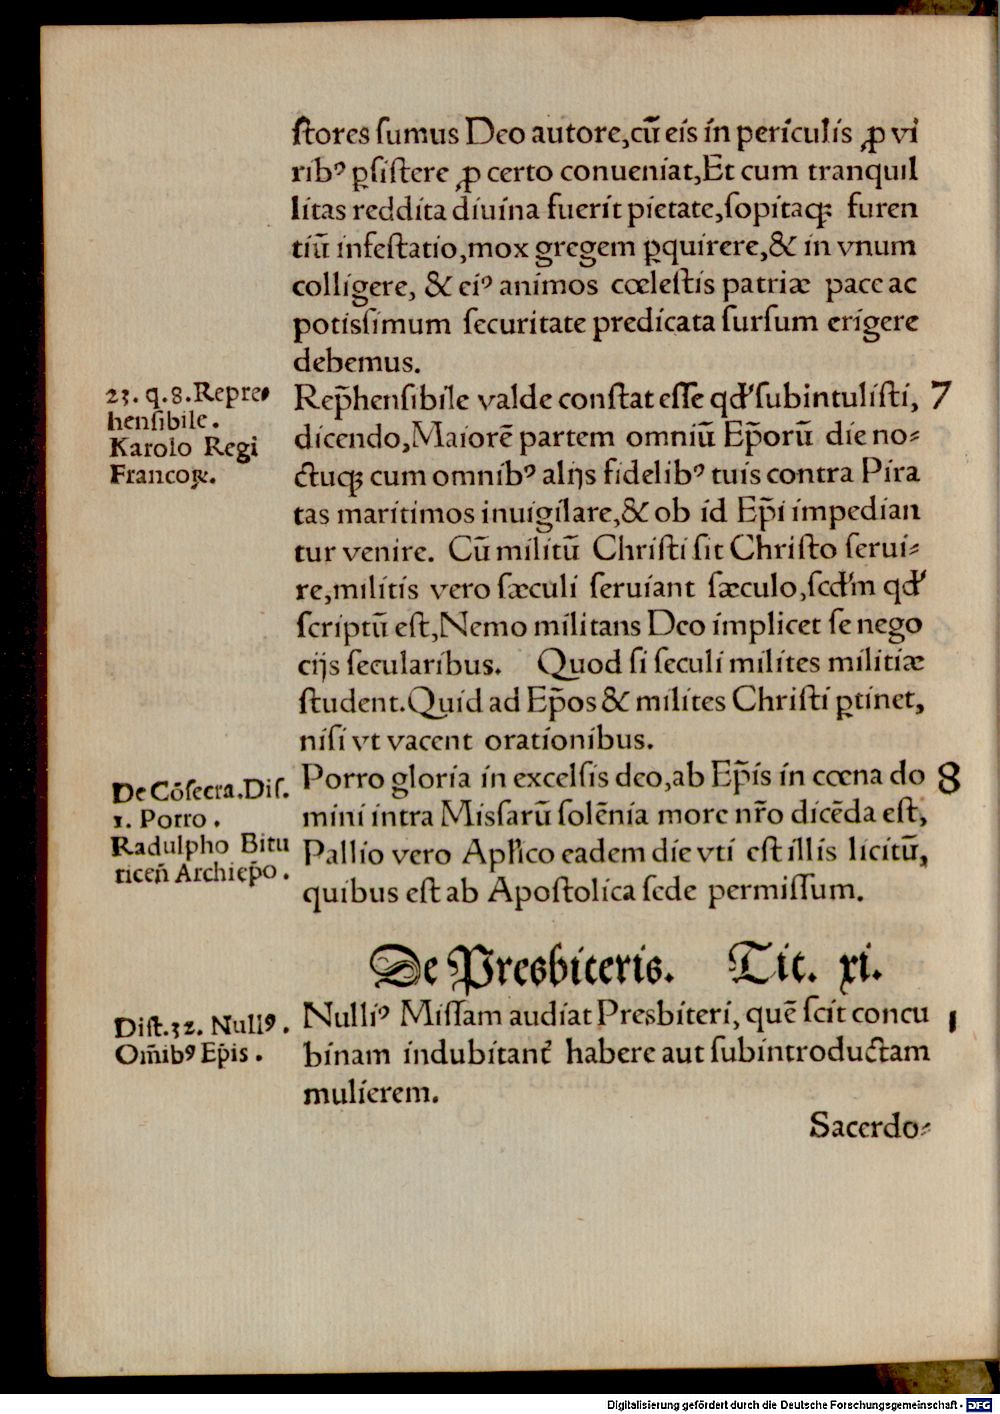 ſtores ſumus Deo autore,cū eis in periculis ꝓ vi
ribꝰ ꝑſiſtere ꝓ certo conueniat,Et cum tranquil
litas reddita diuina fuerit pietate,ſopitaqꝫ furen
tiū infeſtatio,mox gregem ꝑquirere,& in vnum
colligere, & eiꝰ animos cœleſtis patriæ pace ac
potiſsimum ſecuritate predicata ſurſum erigere
debemus.
23. q.8.Repre⸗
henſibile.
Karolo Regi
Francoꝝ.
Rep̄henſibile valde conſtat eſſe qđ ſubintuliſti, 7
dicendo,Maiorē partem omniū Ep̄orū die no⸗
ctuqꝫ cum omnibꝰ alijs fidelibꝰ tuis contra Pira
tas maritimos inuigilare,& ob id Ep̄i impedian
tur venire. Cū militū Chriſti ſit Chriſto ſerui⸗
re,militis vero ſæculi ſeruiant ſæculo,ſcđm qđ
ſcriptū eſt,Nemo militans Deo implicet ſe nego
cijs ſecularibus. Quod ſi ſeculi milites militiæ
ſtudent.Quid ad Ep̄os & milites Chriſti ꝑtinet,
niſi vt vacent orationibus.
De Cōſecra.Diſ.
1. Porro .
Radulpho Bitu
riceñ Archiep̄o .
Porro gloria in excelſis deo,ab Ep̄is in cœna do 8
mini intra Miſsarū ſolēnia more nr̄o dicēda eſt,
Pallio vero Apl̄ico eadem die vti eſt illis licitū,
quibus eſt ab Apoſtolica ſede permiſſum.
De Presbiteris. Tit. xi.
Diſt.32. Nullꝰ .
Om̄ibꝰ Ep̄is .
Nulliꝰ Miſſam audiat Presbiteri, quē ſcit concu 1
binam indubitant̃ habere aut ſubintroductam
mulierem.
Sacerdo⸗
Digitalisierung gefördert durch die Deutsche Forschungsgemeinschaft - DFG